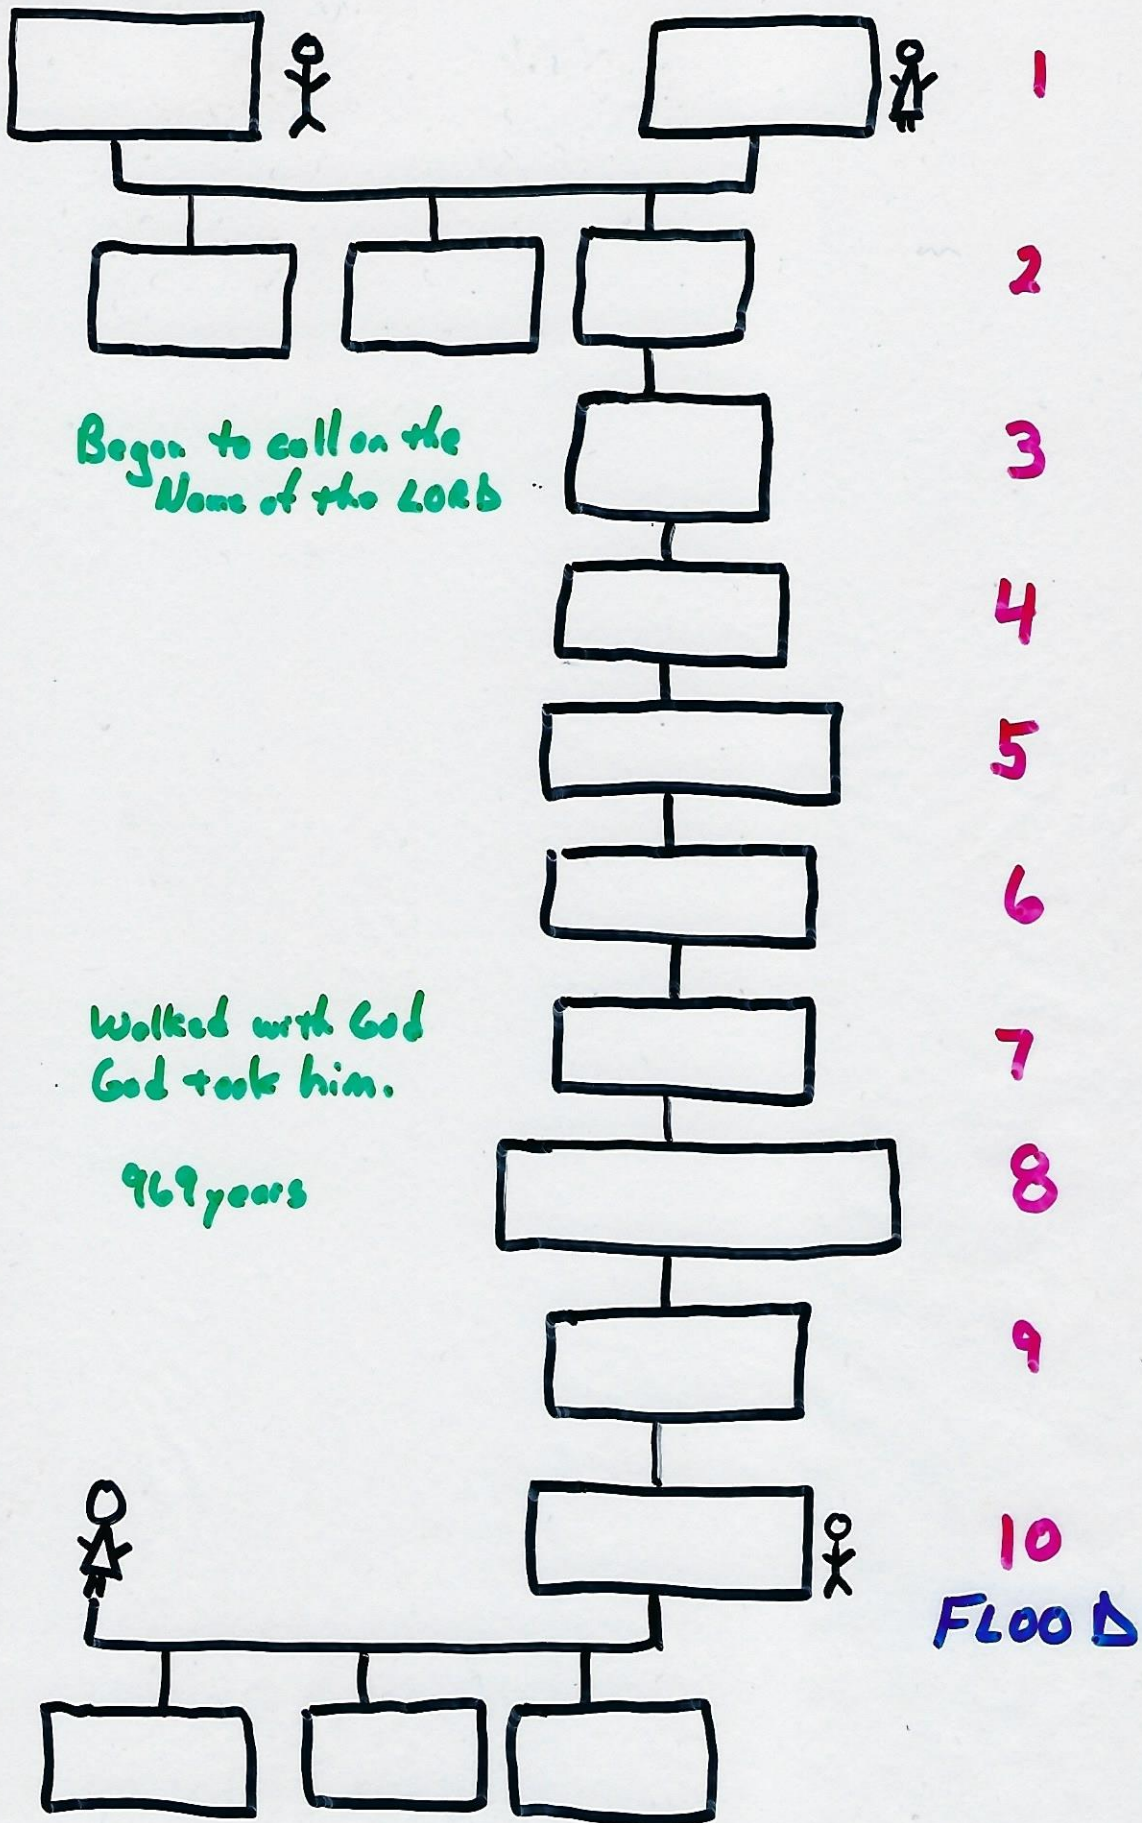 1
2
Began to call on the
Name of the LORD
3
4
5
6
Walked with God
God took him.
7
969 years
8
9
10
FLOOD